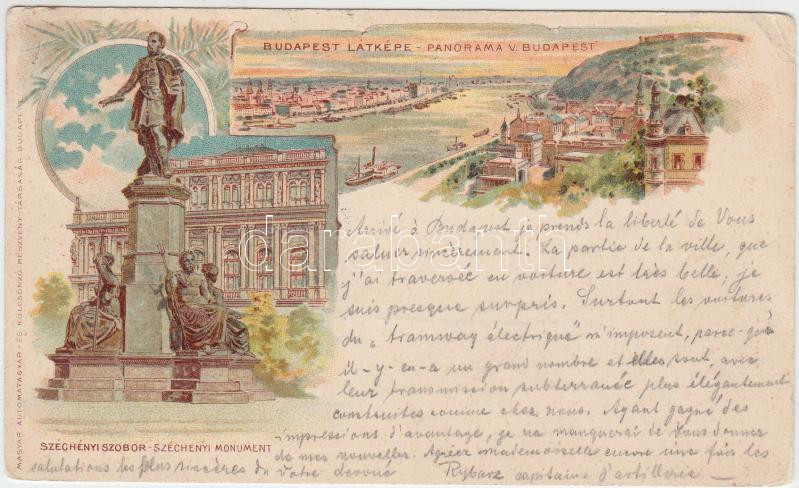 BUDAPEST LÁTKÉPE - PANORAMA V. BUDAPEST
MAGYAR AUTOMATAGYÁR- ÉS KÖLCSÖNZŐ RÉSZVÉNY-TÁRSASÁG BUDAPE
SZÉCHÉNYI SZOBOR - SZÉCHENYI MONUMENT
darabanth
Arrivé à Budapest je prends la liberté de Vous
saluer sincèrement. La partie de la ville, que
j'ai traversée en voiture est très belle, je
suis presque surpris. Surtout les voitures
du „tramway électrique" m'imposent, parce-que
il-y-en-a un grand nombre et elles sont, avec
leur transmission subterranée plus élégantement
construites comme chez nous. Ayant gagné des
impressions d'avantage, je ne manquerai de Vous donner
de mes nouvelles. Agréez mademoiselle encore une fois les
salutations les plus sincères de Votre devoué Rybarz capitaine d'artillerie